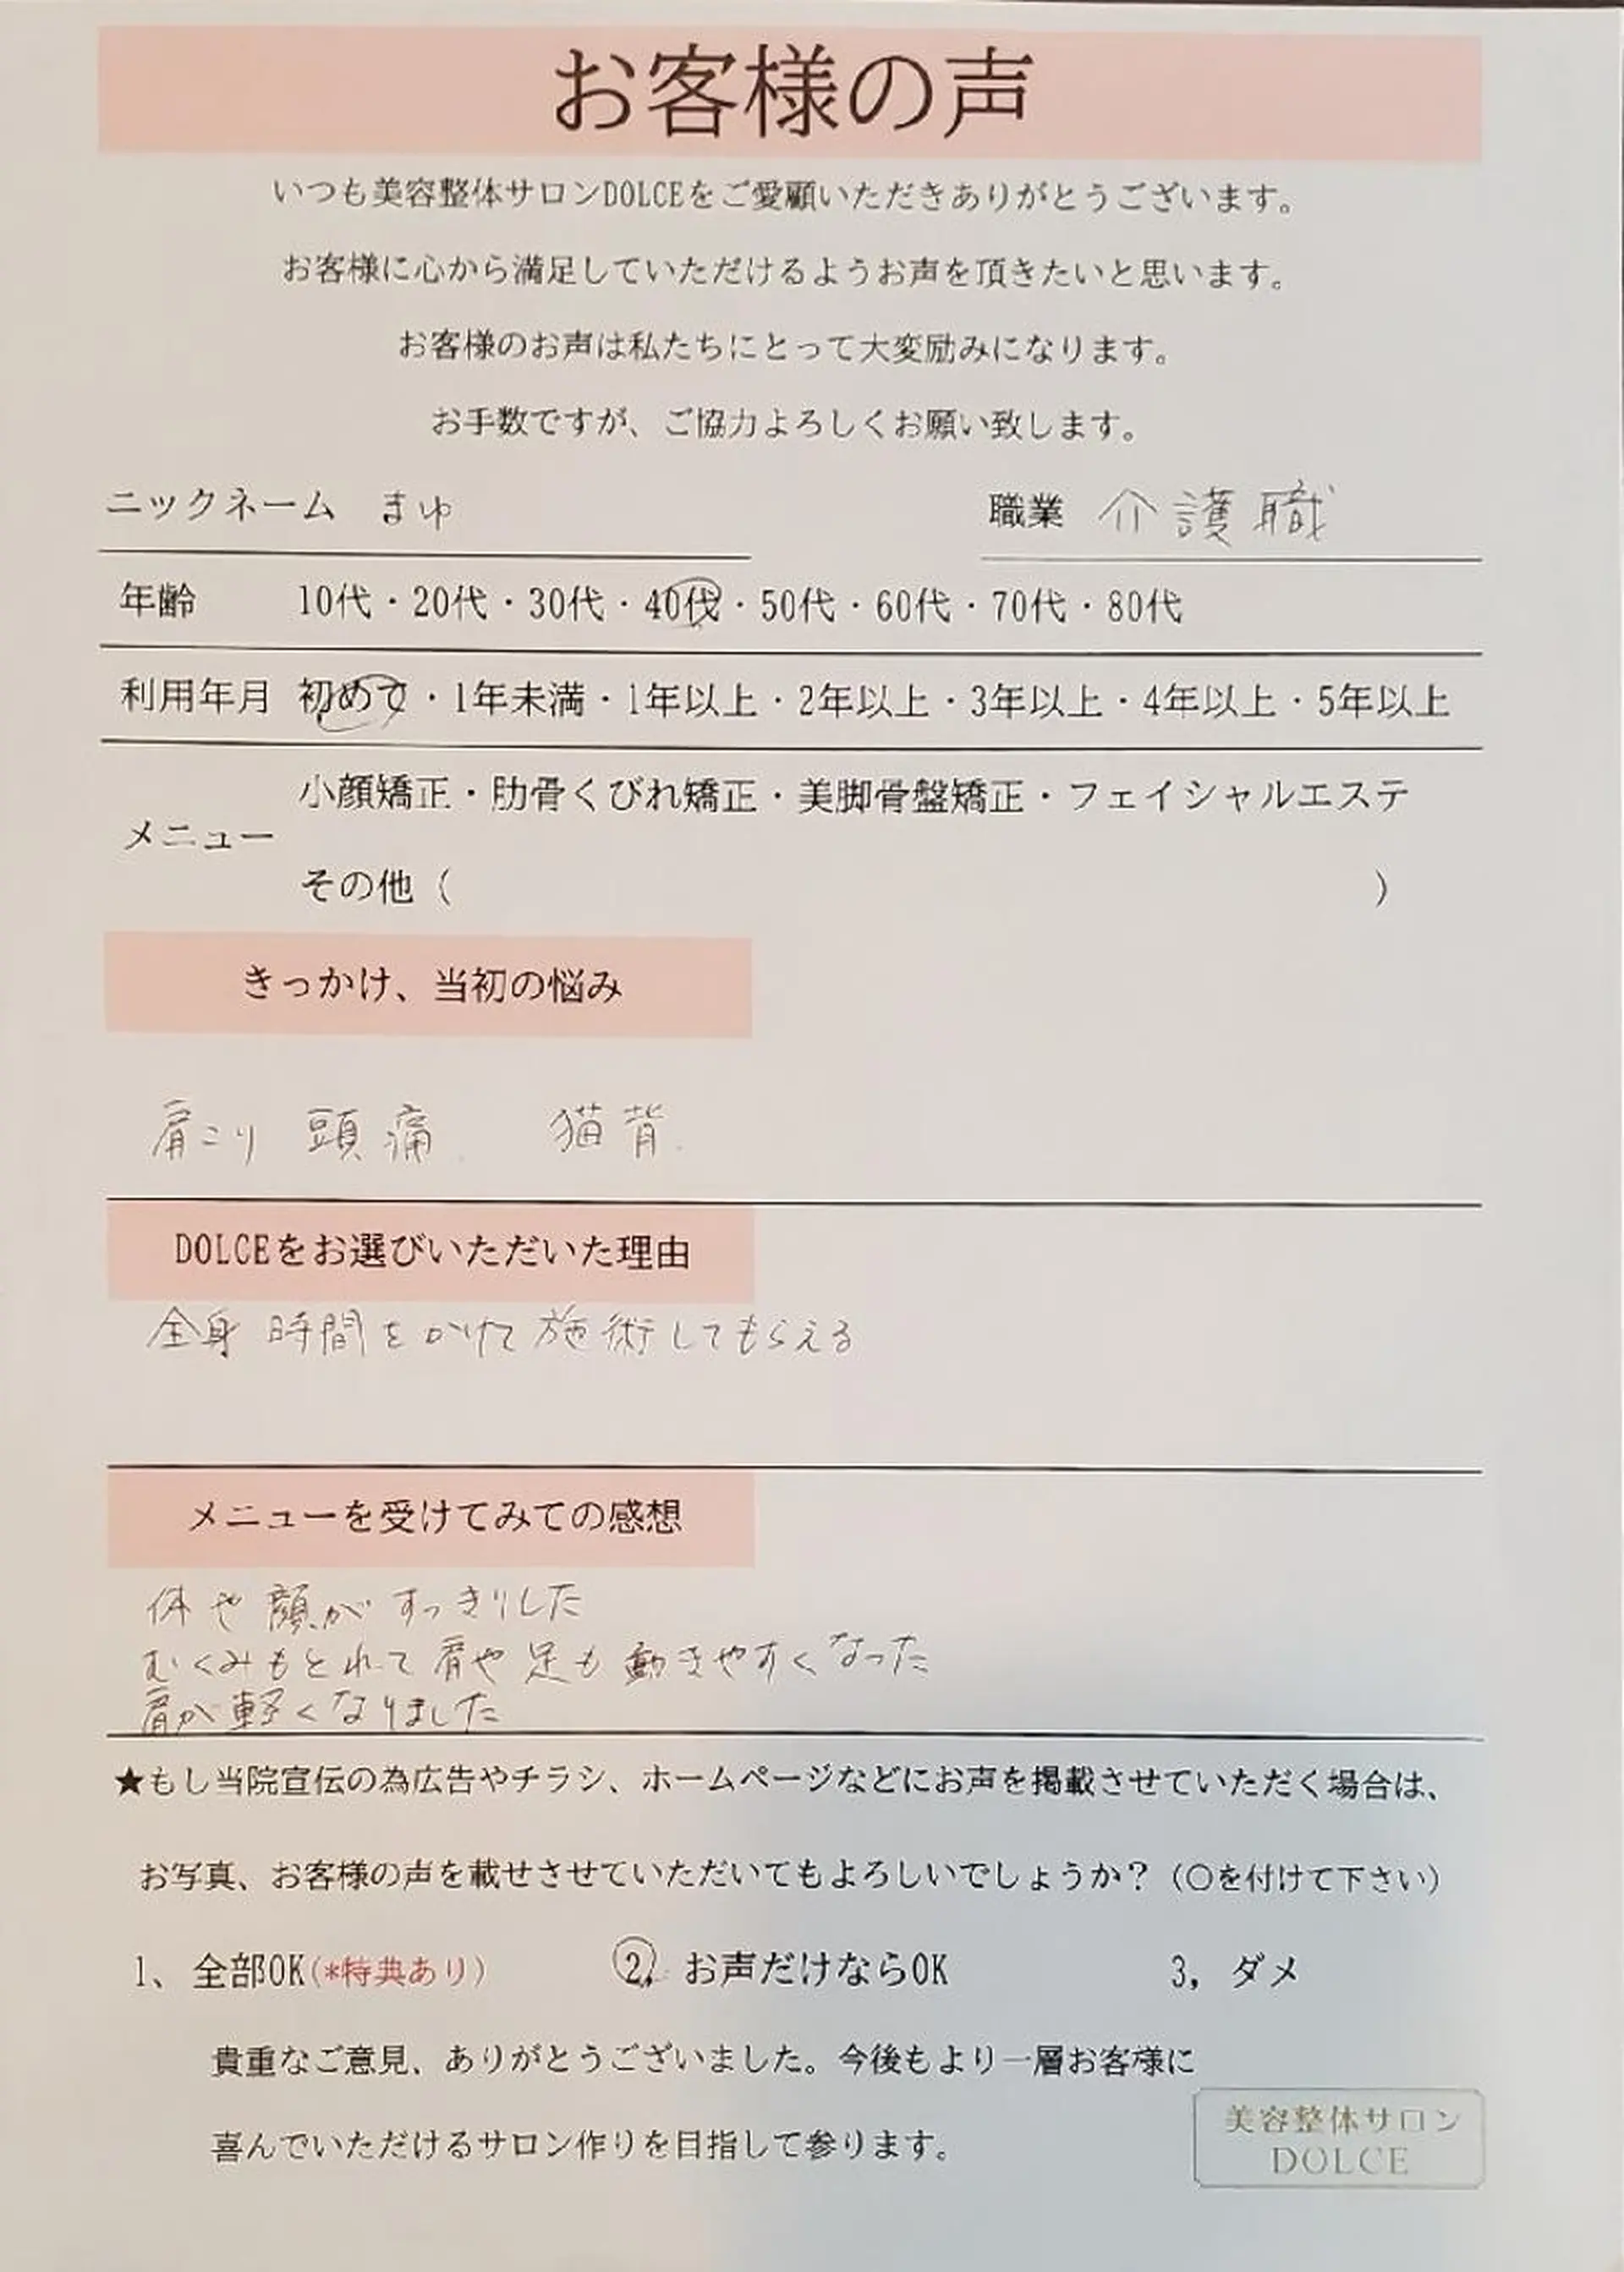 お客様の声
いつも美容整体サロンDOLCEをご愛顧いただきありがとうございます。
お客様に心から満足していただけるようお声を頂きたいと思います。
お客様のお声は私たちにとって大変励みになります。
お手数ですが、ご協力よろしくお願い致します。
ニックネーム まゆ 職業 介護職
年齢 10代・20代・30代・40代・50代・60代・70代・80代
利用年月 初めて・1年未満・1年以上・2年以上・3年以上・4年以上・5年以上
小顔矯正・肋骨くびれ矯正・美脚骨盤矯正・フェイシャルエステ
メニュー
その他（ ）
きっかけ、当初の悩み
肩こり 頭痛 猫背
DOLCEをお選びいただいた理由
全身 時間をかけて施術してもらえる
メニューを受けてみての感想
体や顔がすっきりした
むくみもとれて肩や足も動きやすくなった
肩が軽くなりました
★もし当院宣伝の為広告やチラシ、ホームページなどにお声を掲載させていただく場合は、
お写真、お客様の声を載せさせていただいてもよろしいでしょうか？（〇を付けて下さい）
1、 全部OK(*特典あり) 2, お声だけならOK 3, ダメ
貴重なご意見、ありがとうございました。今後もより一層お客様に
喜んでいただけるサロン作りを目指して参ります。
美容整体サロン
DOLCE